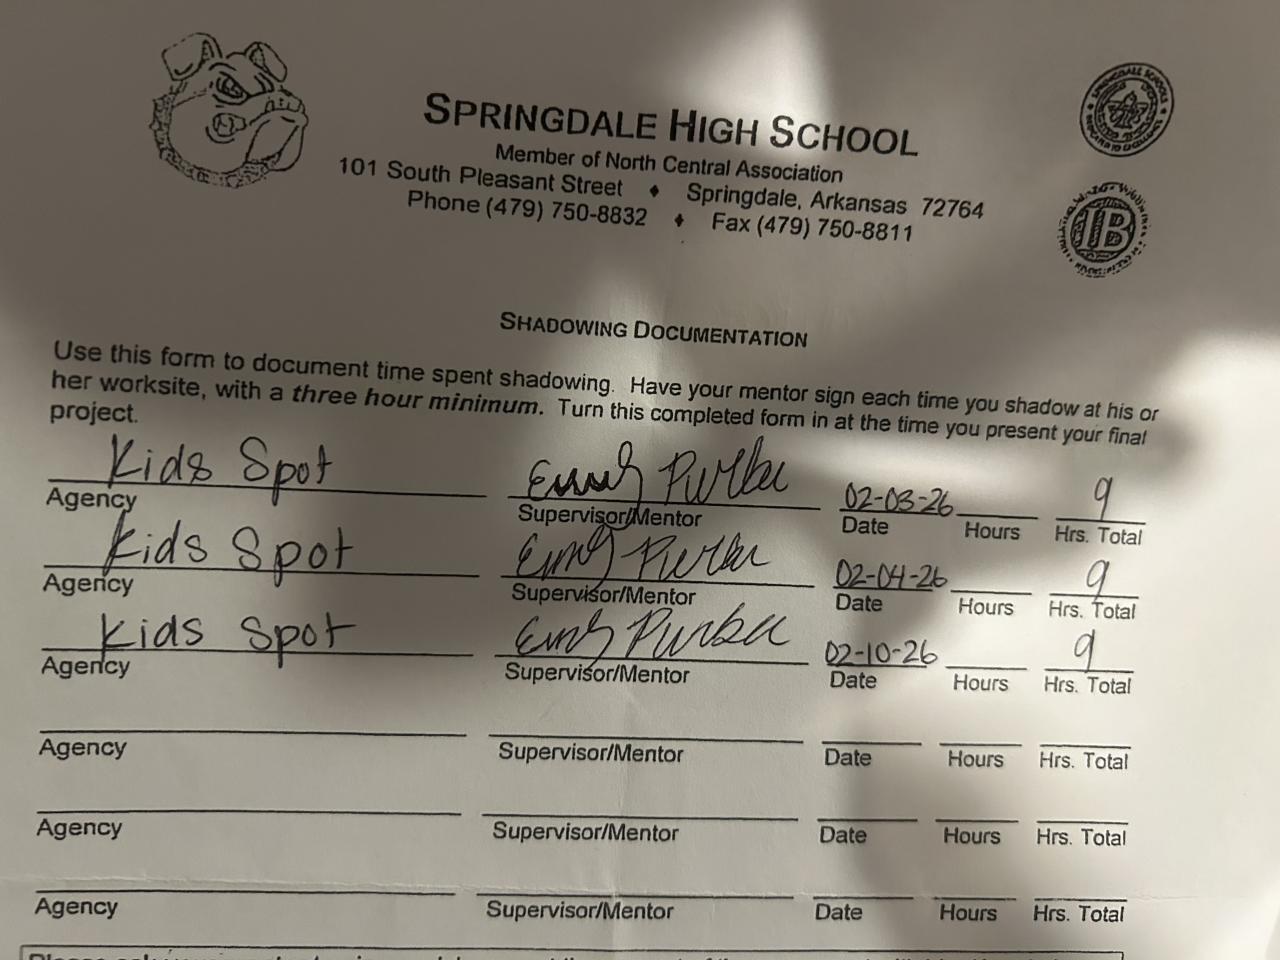 SPRINGDALE HIGH SCHOOL
Member of North Central Association
101 South Pleasant Street ♦ Springdale, Arkansas 72764
Phone (479) 750-8832 ♦ Fax (479) 750-8811
IB
SHADOWING DOCUMENTATION
Use this form to document time spent shadowing. Have your mentor sign each time you shadow at his or
her worksite, with a three hour minimum. Turn this completed form in at the time you present your final
project.
Kids Spot 02-03-26 9
Agency Supervisor/Mentor Date Hours Hrs. Total
Kids Spot 02-04-26 9
Agency Supervisor/Mentor Date Hours Hrs. Total
Kids Spot 02-10-26 9
Agency Supervisor/Mentor Date Hours Hrs. Total
Agency Supervisor/Mentor Date Hours Hrs. Total
Agency Supervisor/Mentor Date Hours Hrs. Total
Agency Supervisor/Mentor Date Hours Hrs. Total